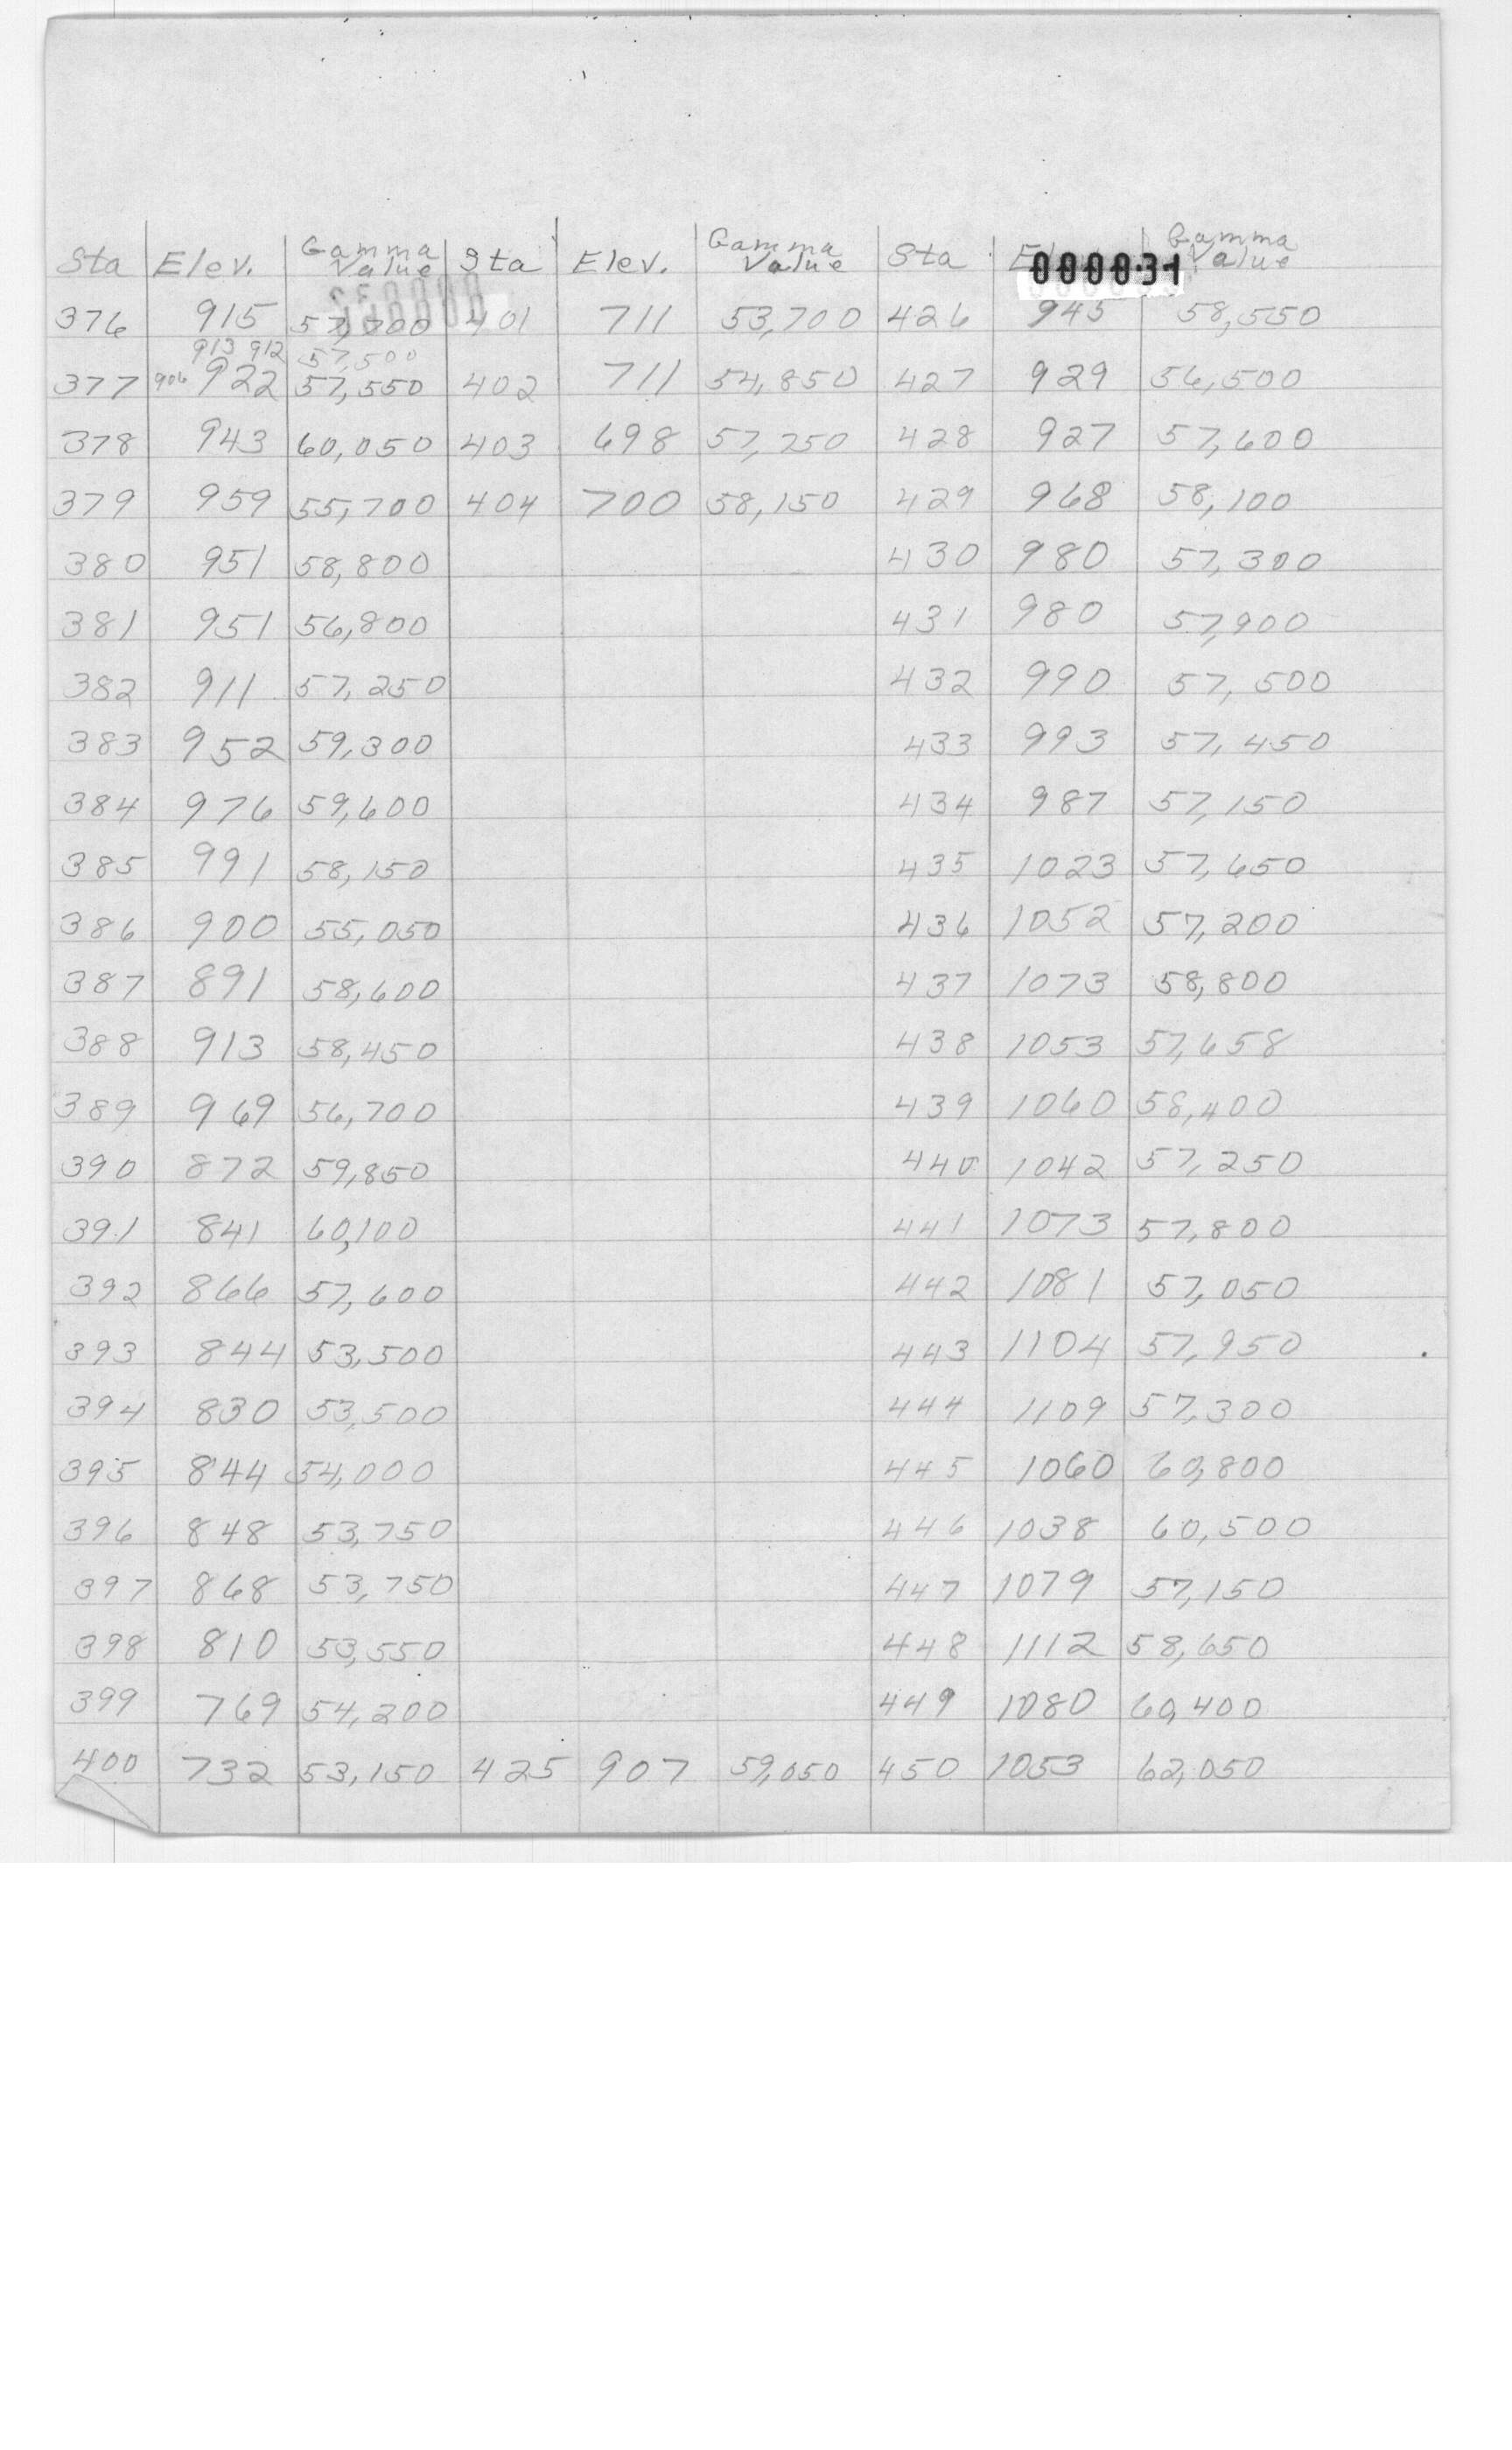 Sta Elev. Gamma Value Sta Elev. Gamma Value Sta 000031 Gamma Value
376 915 57,700 401 711 53,700 426 945 58,550
913 912 57,500
377 906 922 57,550 402 711 54,850 427 929 56,500
378 943 60,050 403 698 57,750 428 927 57,600
379 959 55,700 404 700 58,150 429 968 58,100
380 951 58,800 430 980 57,300
381 951 56,800 431 980 57,900
382 911 57,250 432 990 57,500
383 952 59,300 433 993 57,450
384 976 59,600 434 987 57,150
385 991 58,150 435 1023 57,650
386 900 55,050 436 1052 57,200
387 891 58,600 437 1073 58,800
388 913 58,450 438 1053 57,658
389 969 56,700 439 1060 58,400
390 872 59,850 440 1042 57,250
391 841 60,100 441 1073 57,800
392 866 57,600 442 1081 57,050
393 844 53,500 443 1104 57,950
394 830 53,500 444 1109 57,300
395 844 54,000 445 1060 60,800
396 848 53,750 446 1038 60,500
397 868 53,750 447 1079 57,150
398 810 53,550 448 1112 58,650
399 769 54,200 449 1080 60,400
400 732 53,150 425 907 59,050 450 1053 62,050